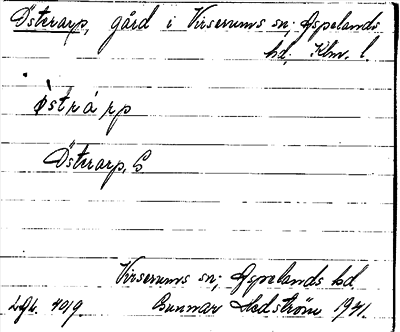 Österarp, gård i Virserums sn; Aspelands
hd, Klm. l.
östrárp
Österarp, S
Virserums sn; Aspelands hd
Lgh. 4019. Gunnar Hedström 1941.